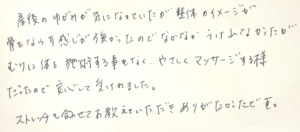 産後のゆがみが気になっていたが整体のイメージが
骨をならす感じが強かったのでなかなかうけれなかったが
むりに体を 施術する事もなく、やさしくマッサージする様
だったので 安心して 受けれました。
ストレッチも合わせてお教えいただきありがたかったです。